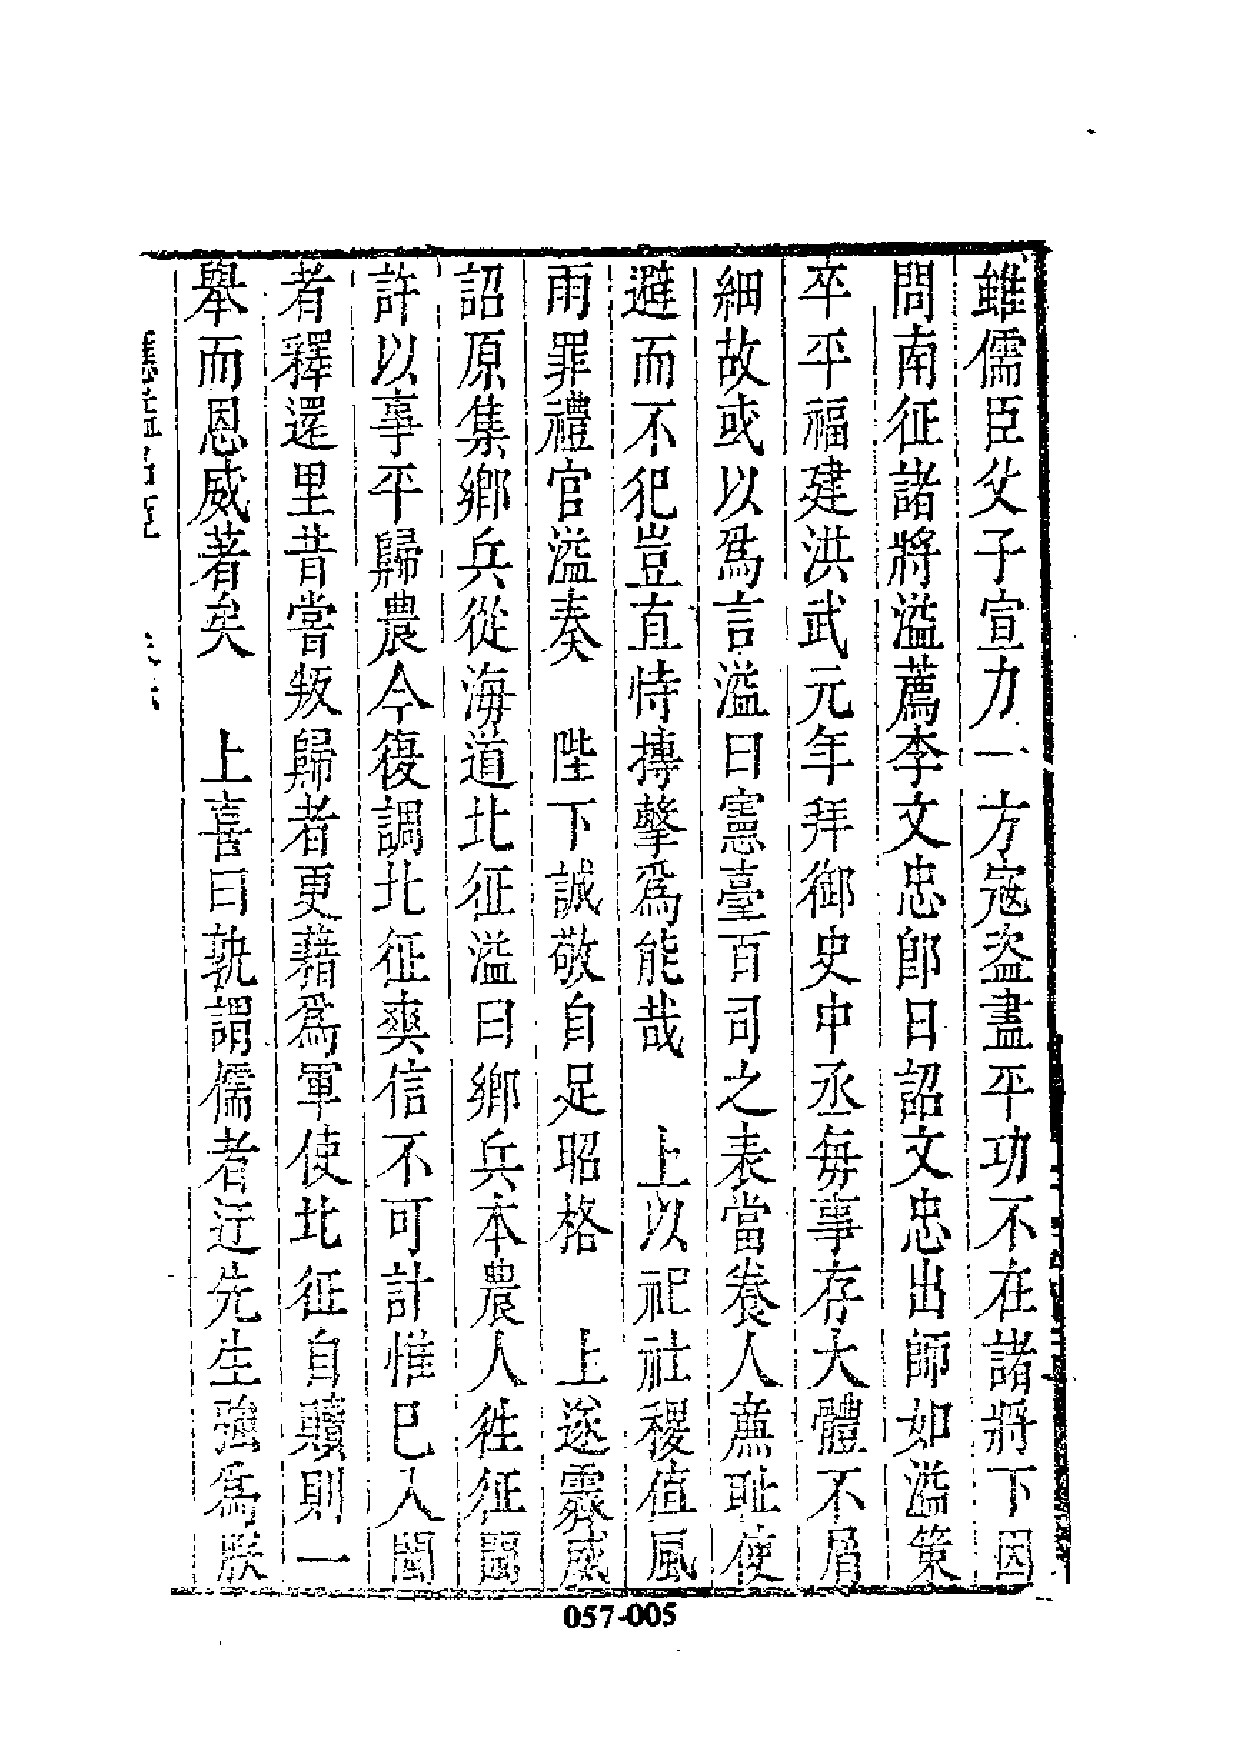 雖儒臣父子宣力一方寇盗盡平功不在諸將下因
問南征諸將溢薦李文忠即日詔文忠出師如溢策
卒平福建洪武元年拜御史中丞每事存大體不屑
細故或以爲言溢曰憲臺百司之表當養人廉耻使
避而不犯豈直恃摶擊爲能哉　上以祀社稷值風
雨罪禮官溢奏　陛下誠敬自足昭格　上遂霽威
詔原集鄉兵從海道北征溢曰鄉兵本農人徃征閩
許以事平歸農今復調北征爽信不可計惟已入閩
者釋還里昔嘗叛歸者更藉爲軍使北征自贖則一
舉而恩威著矣　上喜曰孰謂儒者迂先生強爲朕
057-005